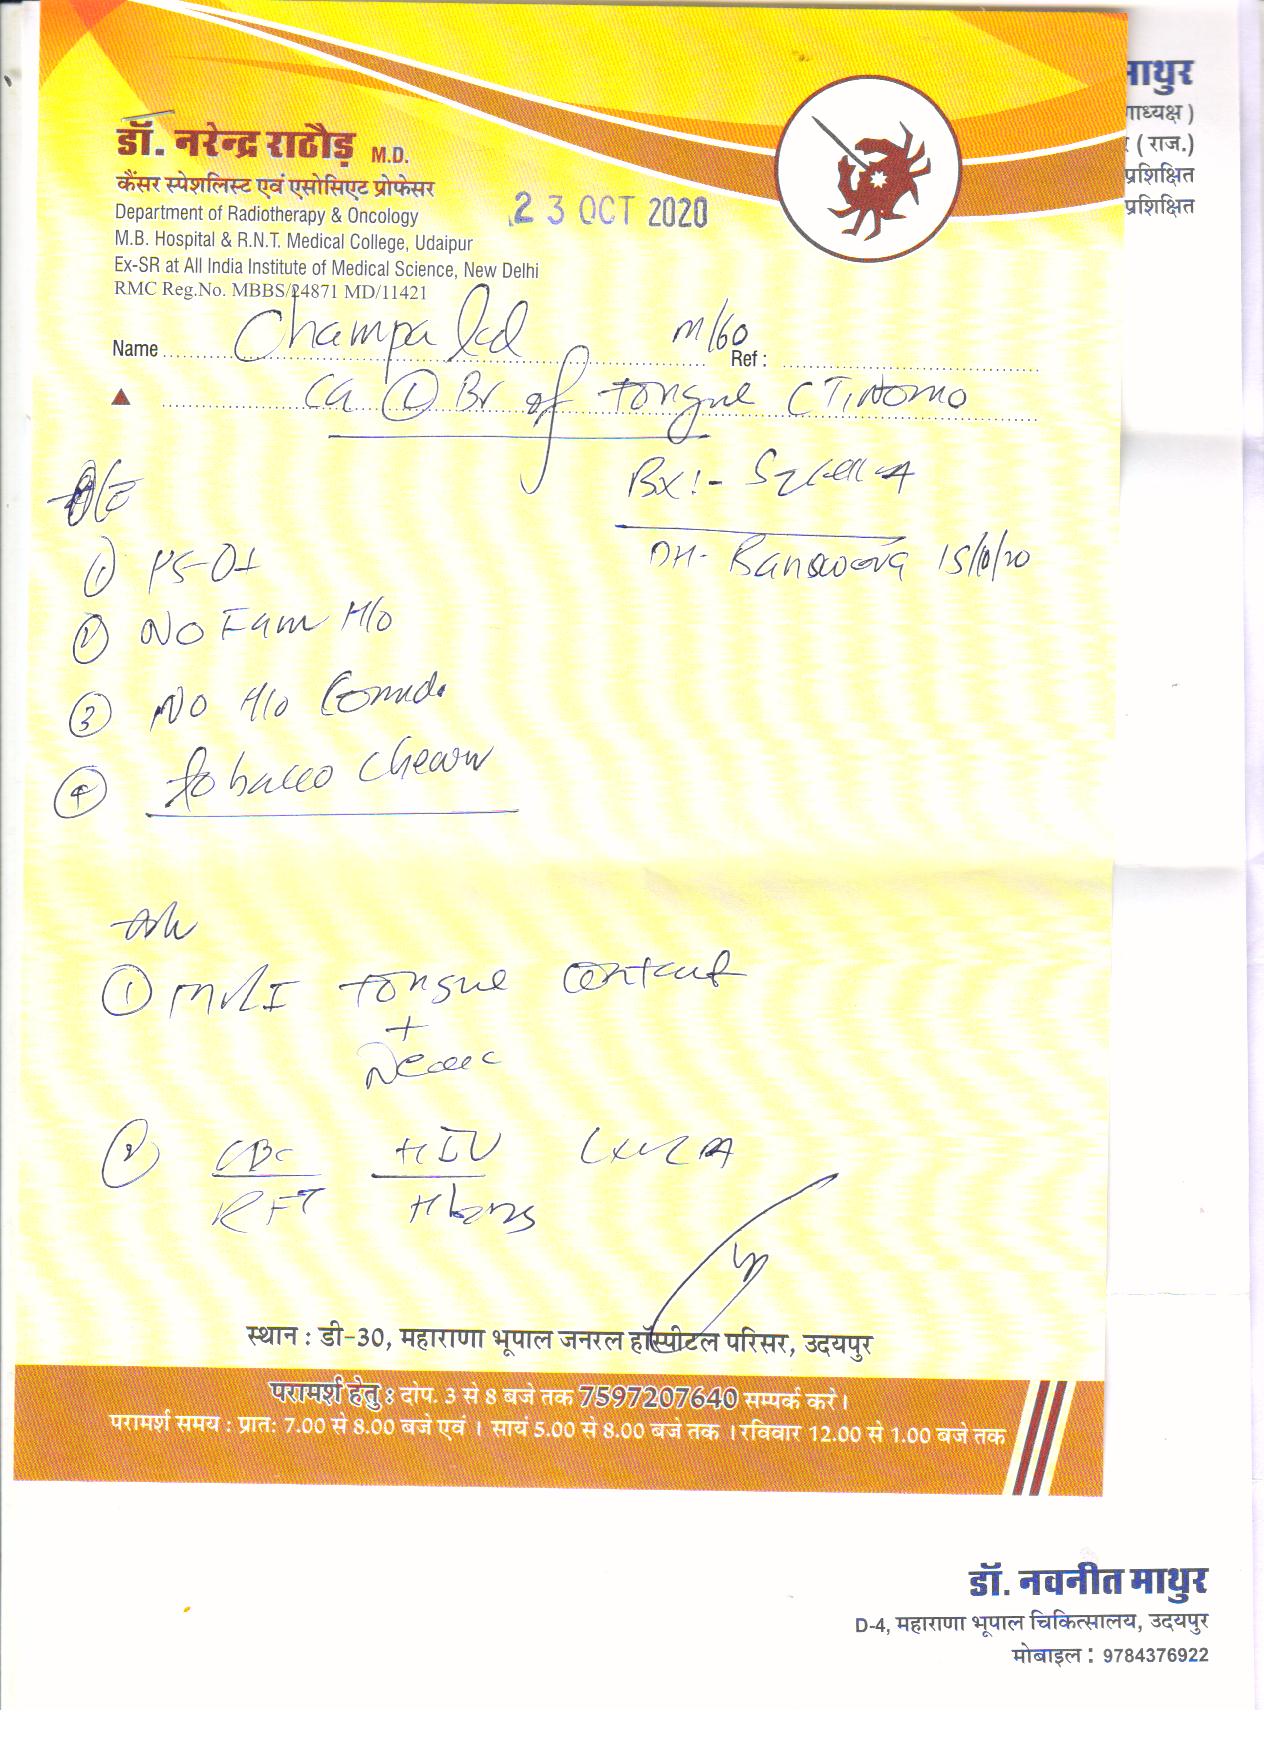 माथुर
ाध्यक्ष )
( राज.)
प्रशिक्षित
प्रशिक्षित
डॉ. नरेन्द्र राठौड़ M.D.
कैंसर स्पेशलिस्ट एवं एसोसिएट प्रोफेसर
Department of Radiotherapy & Oncology
23 OCT 2020
M.B. Hospital & R.N.T. Medical College, Udaipur
Ex-SR at All India Institute of Medical Science, New Delhi
RMC Reg.No. MBBS/24871 MD/11421
Name Champa lal M/60 Ref :
Ca (L) Br of tongue CT1N0M0
Bx :-
① PS-01
DH- Banswara 15/10/20
② No Fam H/o
③ No H/o Comd.
④ tobacco chewer
Adv
① MRI tongue contrast
+
Neck
② CBC HIV
RFT HbsAg
स्थान : डी-30, महाराणा भूपाल जनरल हॉस्पीटल परिसर, उदयपुर
परामर्श हेतु : दोप. 3 से 8 बजे तक 7597207640 सम्पर्क करे ।
परामर्श समय : प्रात: 7.00 से 8.00 बजे एवं । सायं 5.00 से 8.00 बजे तक । रविवार 12.00 से 1.00 बजे तक
डॉ. नवनीत माथुर
D-4, महाराणा भूपाल चिकित्सालय, उदयपुर
मोबाइल : 9784376922